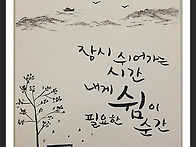 잠시 쉬어가는
시간
내게 쉼이
필요한 순간